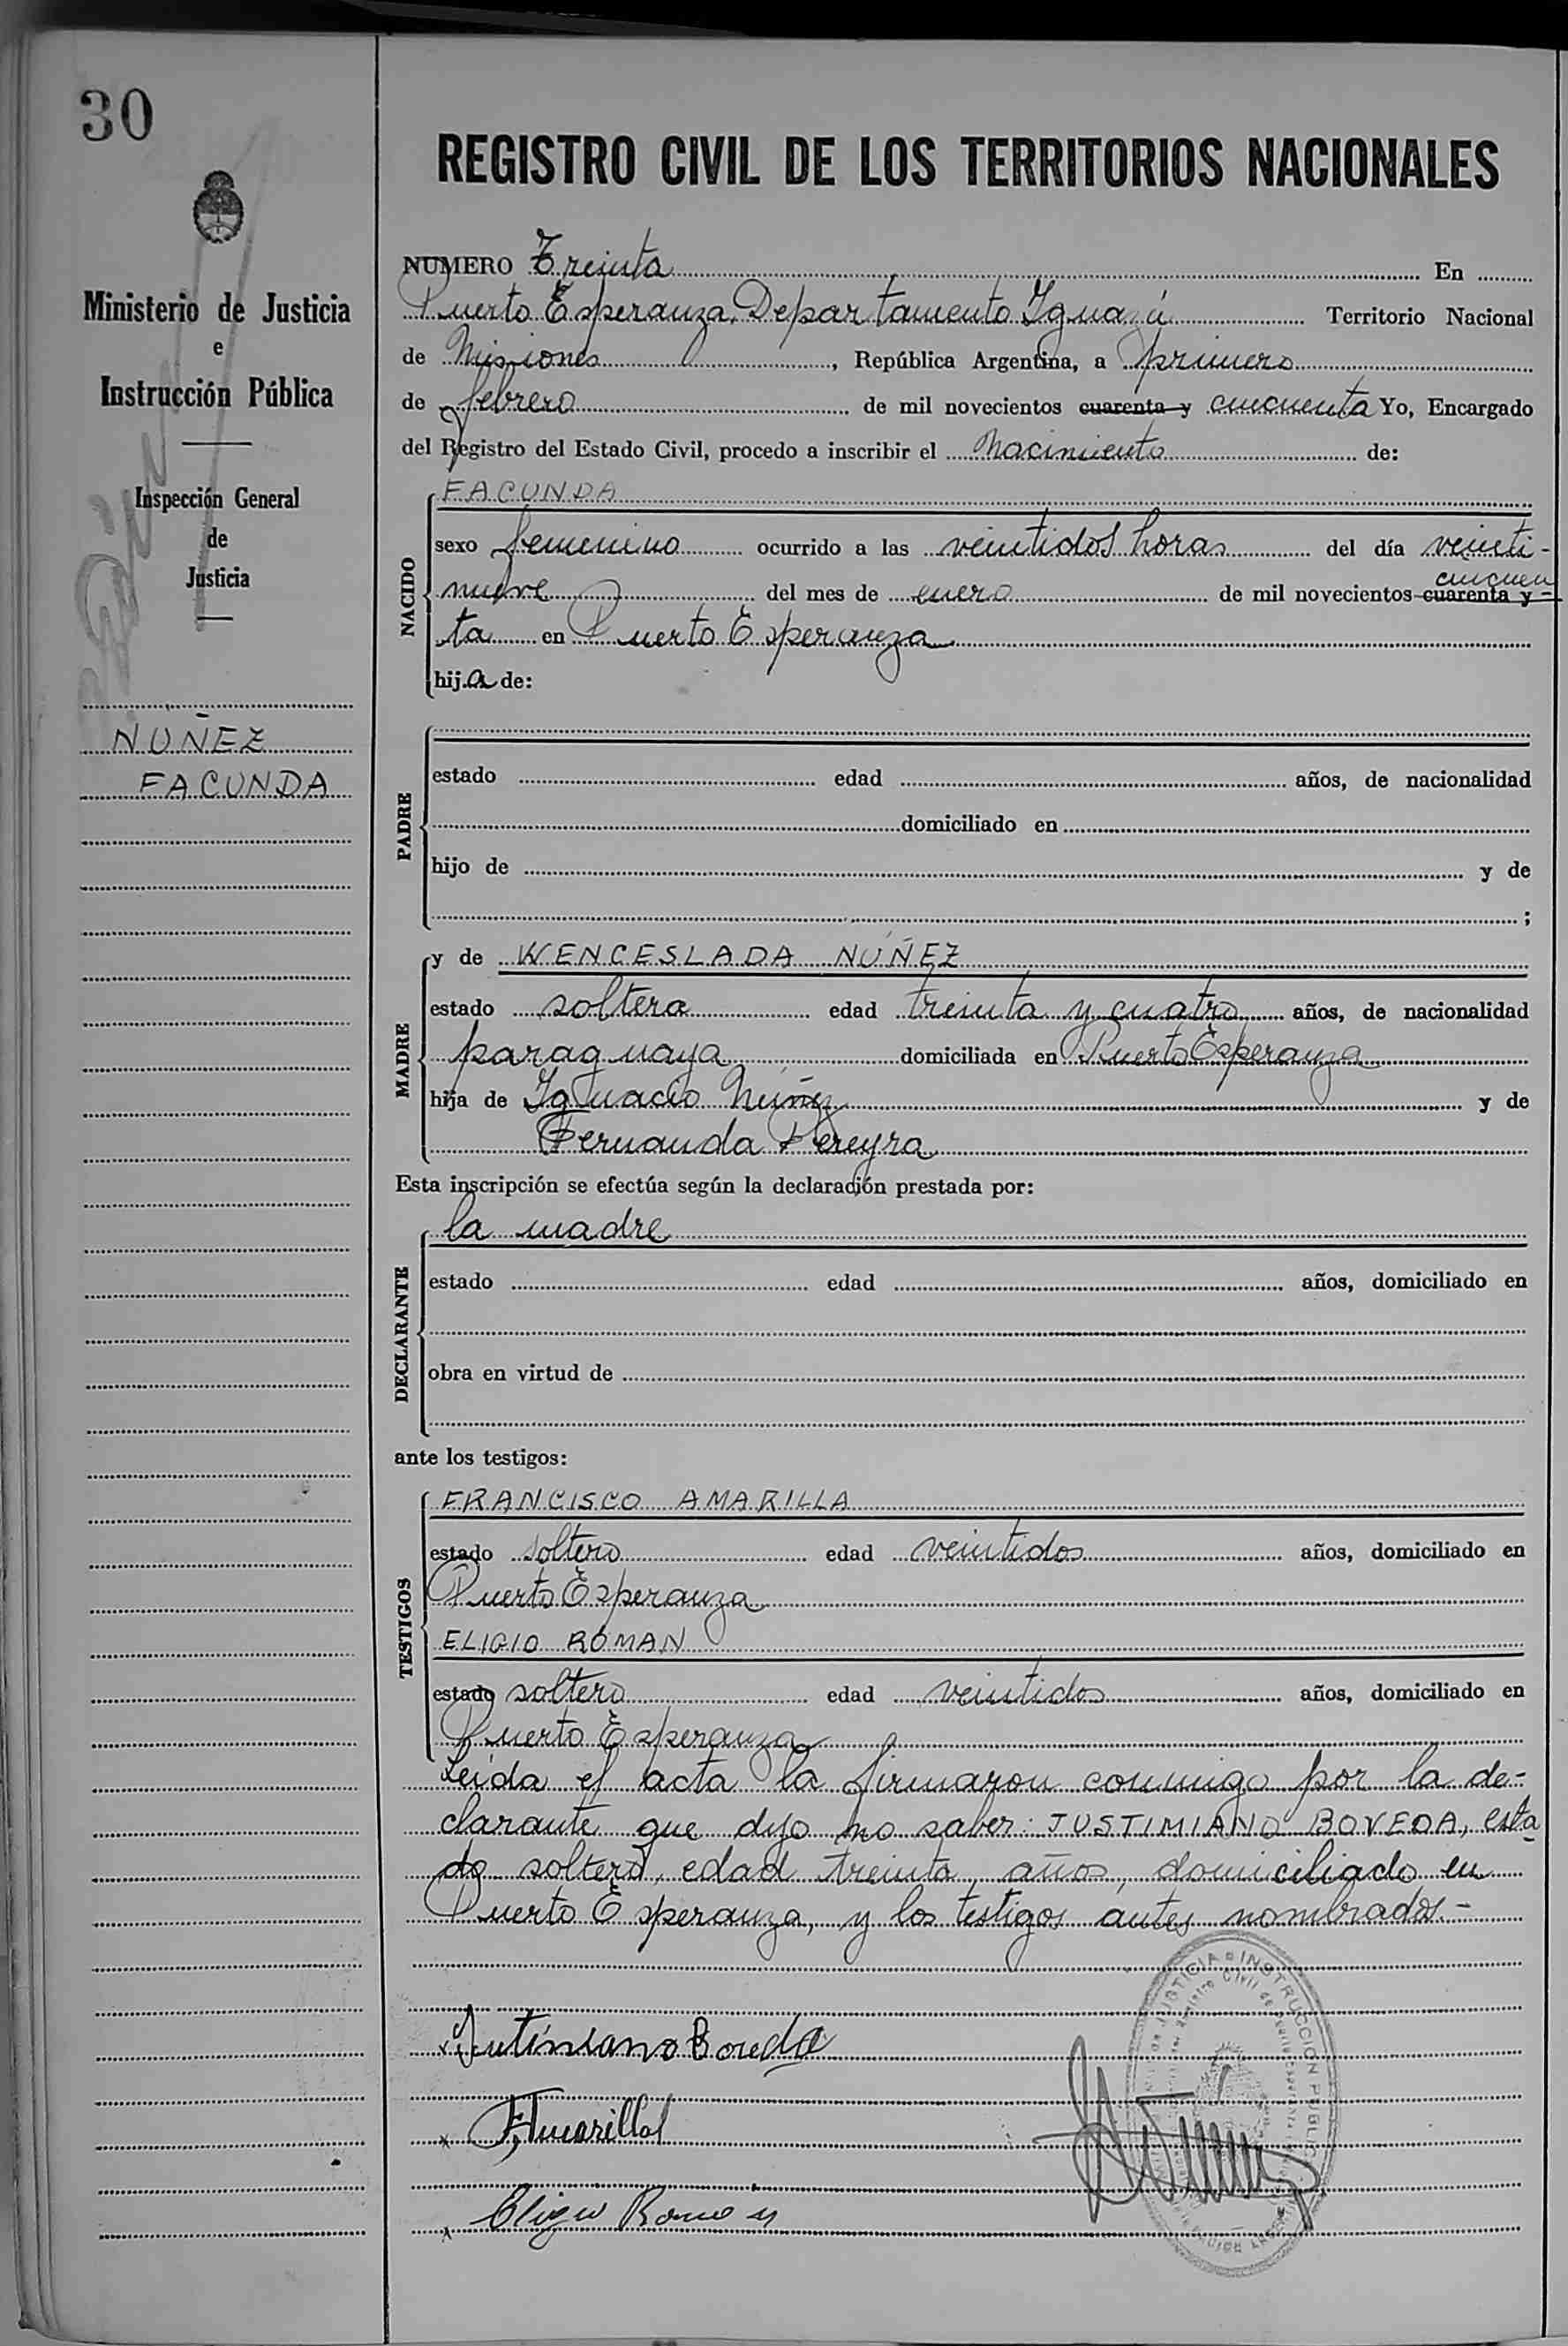 30
Ministerio de Justicia
e
Instrucción Pública
Inspección General
de
Justicia
NUÑEZ
FACUNDA
REGISTRO CIVIL DE LOS TERRITORIOS NACIONALES
NUMERO Treinta En
Puerto Esperanza, Departamento Iguazú Territorio Nacional
de Misiones, República Argentina, a primero
de febrero de mil novecientos cuarenta y cincuenta Yo, Encargado
del Registro del Estado Civil, procedo a inscribir el Nacimiento de:
NACIDO
FACUNDA
sexo femenino ocurrido a las veintidos horas del día veinti-
nueve del mes de enero de mil novecientos cuarenta y cincuen
ta en Puerto Esperanza
hija de:
PADRE
estado edad años, de nacionalidad
domiciliado en
hijo de y de
;
MADRE
y de WENCESLADA NÚÑEZ
estado soltera edad treinta y cuatro años, de nacionalidad
paraguaya domiciliada en Puerto Esperanza
hija de Ignacio Núñez y de
Fernanda Pereyra
Esta inscripción se efectúa según la declaración prestada por:
DECLARANTE
la madre
estado edad años, domiciliado en
obra en virtud de
ante los testigos:
TESTIGOS
FRANCISCO AMARILLA
estado soltero edad veintidos años, domiciliado en
Puerto Esperanza
ELIGIO ROMAN
estado soltero edad veintidos años, domiciliado en
Puerto Esperanza
Leída el acta la firmaron conmigo por la de-
clarante que dijo no saber: JUSTIMIANO BOVEDA, esta
do soltero, edad treinta años, domiciliado en
Puerto Esperanza, y los testigos antes nombrados.-
JUSTICIA INSTRUCCIÓN PUBLICA
F. Amarilla
Eligio Roman